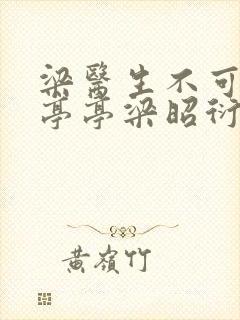 梁醫生不可
亭亭梁昭衍
黃嶺竹